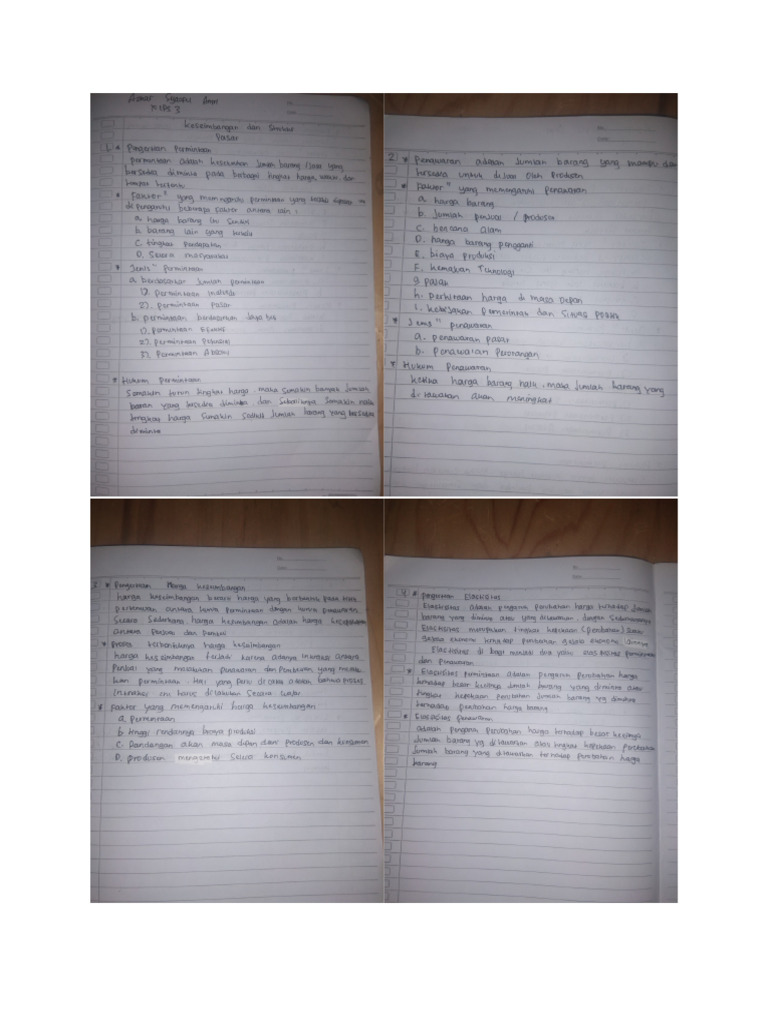 X IPS 3
Keseimbangan dan Struktur
Pasar
1. * Pengertian Permintaan
permintaan adalah keseluruhan Jumlah barang/Jasa yang
bersedia diminta pada berbagai tingkat harga, waktu, dan
tempat tertentu
* Faktor" yang memengaruhi permintaan
di pengaruhi beberapa faktor antara lain :
a. harga barang itu sendiri
b. barang lain yang
C. tingkat Pendapatan
D. Selera masyarakat
* Jenis" Permintaan
a. berdasarkan Jumlah permintaan
1). permintaan Individu
2). permintaan pasar
b. permintaan berdasarkan daya beli
1). permintaan Efektif
2). permintaan Potensial
3). Permintaan Absolut
* Hukum Permintaan
Semakin turun tingkat harga, maka Semakin banyak Jumlah
barang yang bersedia diminta dan Sebaliknya Semakin
tingkat harga Semakin Sedikit Jumlah barang yang bersedia
diminta
2 * Penawaran adalah Jumlah barang yang mampu dan
bersedia untuk di Jual oleh Produsen
* Faktor" yang memengaruhi Penawaran
a. harga barang
b. Jumlah penjual / produsen
C. bencana alam
D. harga barang pengganti
E. biaya produksi
F. kemajuan Teknologi
g pajak
h. perkiraan harga di masa Depan
i. kebijakan pemerintah dan Situasi Politik
* Jenis" penawaran
a. penawaran pasar
b. Penawaran Perorangan
* Hukum Penawaran
ketika harga barang naik, maka Jumlah barang yang
di tawarkan akan meningkat
3 * Pengertian Harga keseimbangan
harga keseimbangan berarti harga yang berbentuk pada titik
pertemuan antara kurva Permintaan dengan kurva penawaran
Secara Sederhana harga keseimbangan adalah harga kesepakatan
antara Penjual dan Pembeli
* Proses terbentuknya harga keseimbangan
harga keseimbangan terjadi karena adanya Interaksi antara
Penjual yang melakukan penawaran dan Pembeli yang
kan permintaan. Hal yang perlu di catat adalah bahwa proses
Interaksi ini harus dilakukan Secara wajar
* Faktor yang memengaruhi harga keseimbangan
a. Permintaan
b. tinggi rendahnya biaya produksi
C. Pandangan akan masa depan dari produsen dan konsumen
D. produsen mengetahui Selera konsumen
4 * pengertian Elastisitas
Elastisitas adalah pengaruh perubahan harga terhadap Jumlah
barang yang diminta atau yang ditawarkan, dengan
Elastisitas merupakan tingkat kepekaan (perubahan) Suatu
gejala ekonomi terhadap perubahan gejala ekonomi lainnya
Elastisitas di bagi menjadi dua yaitu elastisitas permintaan
dan penawaran
* Elastisitas permintaan adalah pengaruh perubahan harga
terhadap besar kecilnya Jumlah barang yang diminta atau
tingkat kepekaan perubahan Jumlah barang yg diminta
terhadap perubahan harga barang
* Elastisitas Penawaran
adalah pengaruh perubahan harga terhadap besar kecilnya
Jumlah barang yg ditawarkan atau tingkat kepekaan perubahan
Jumlah barang yang ditawarkan terhadap perubahan harga
barang